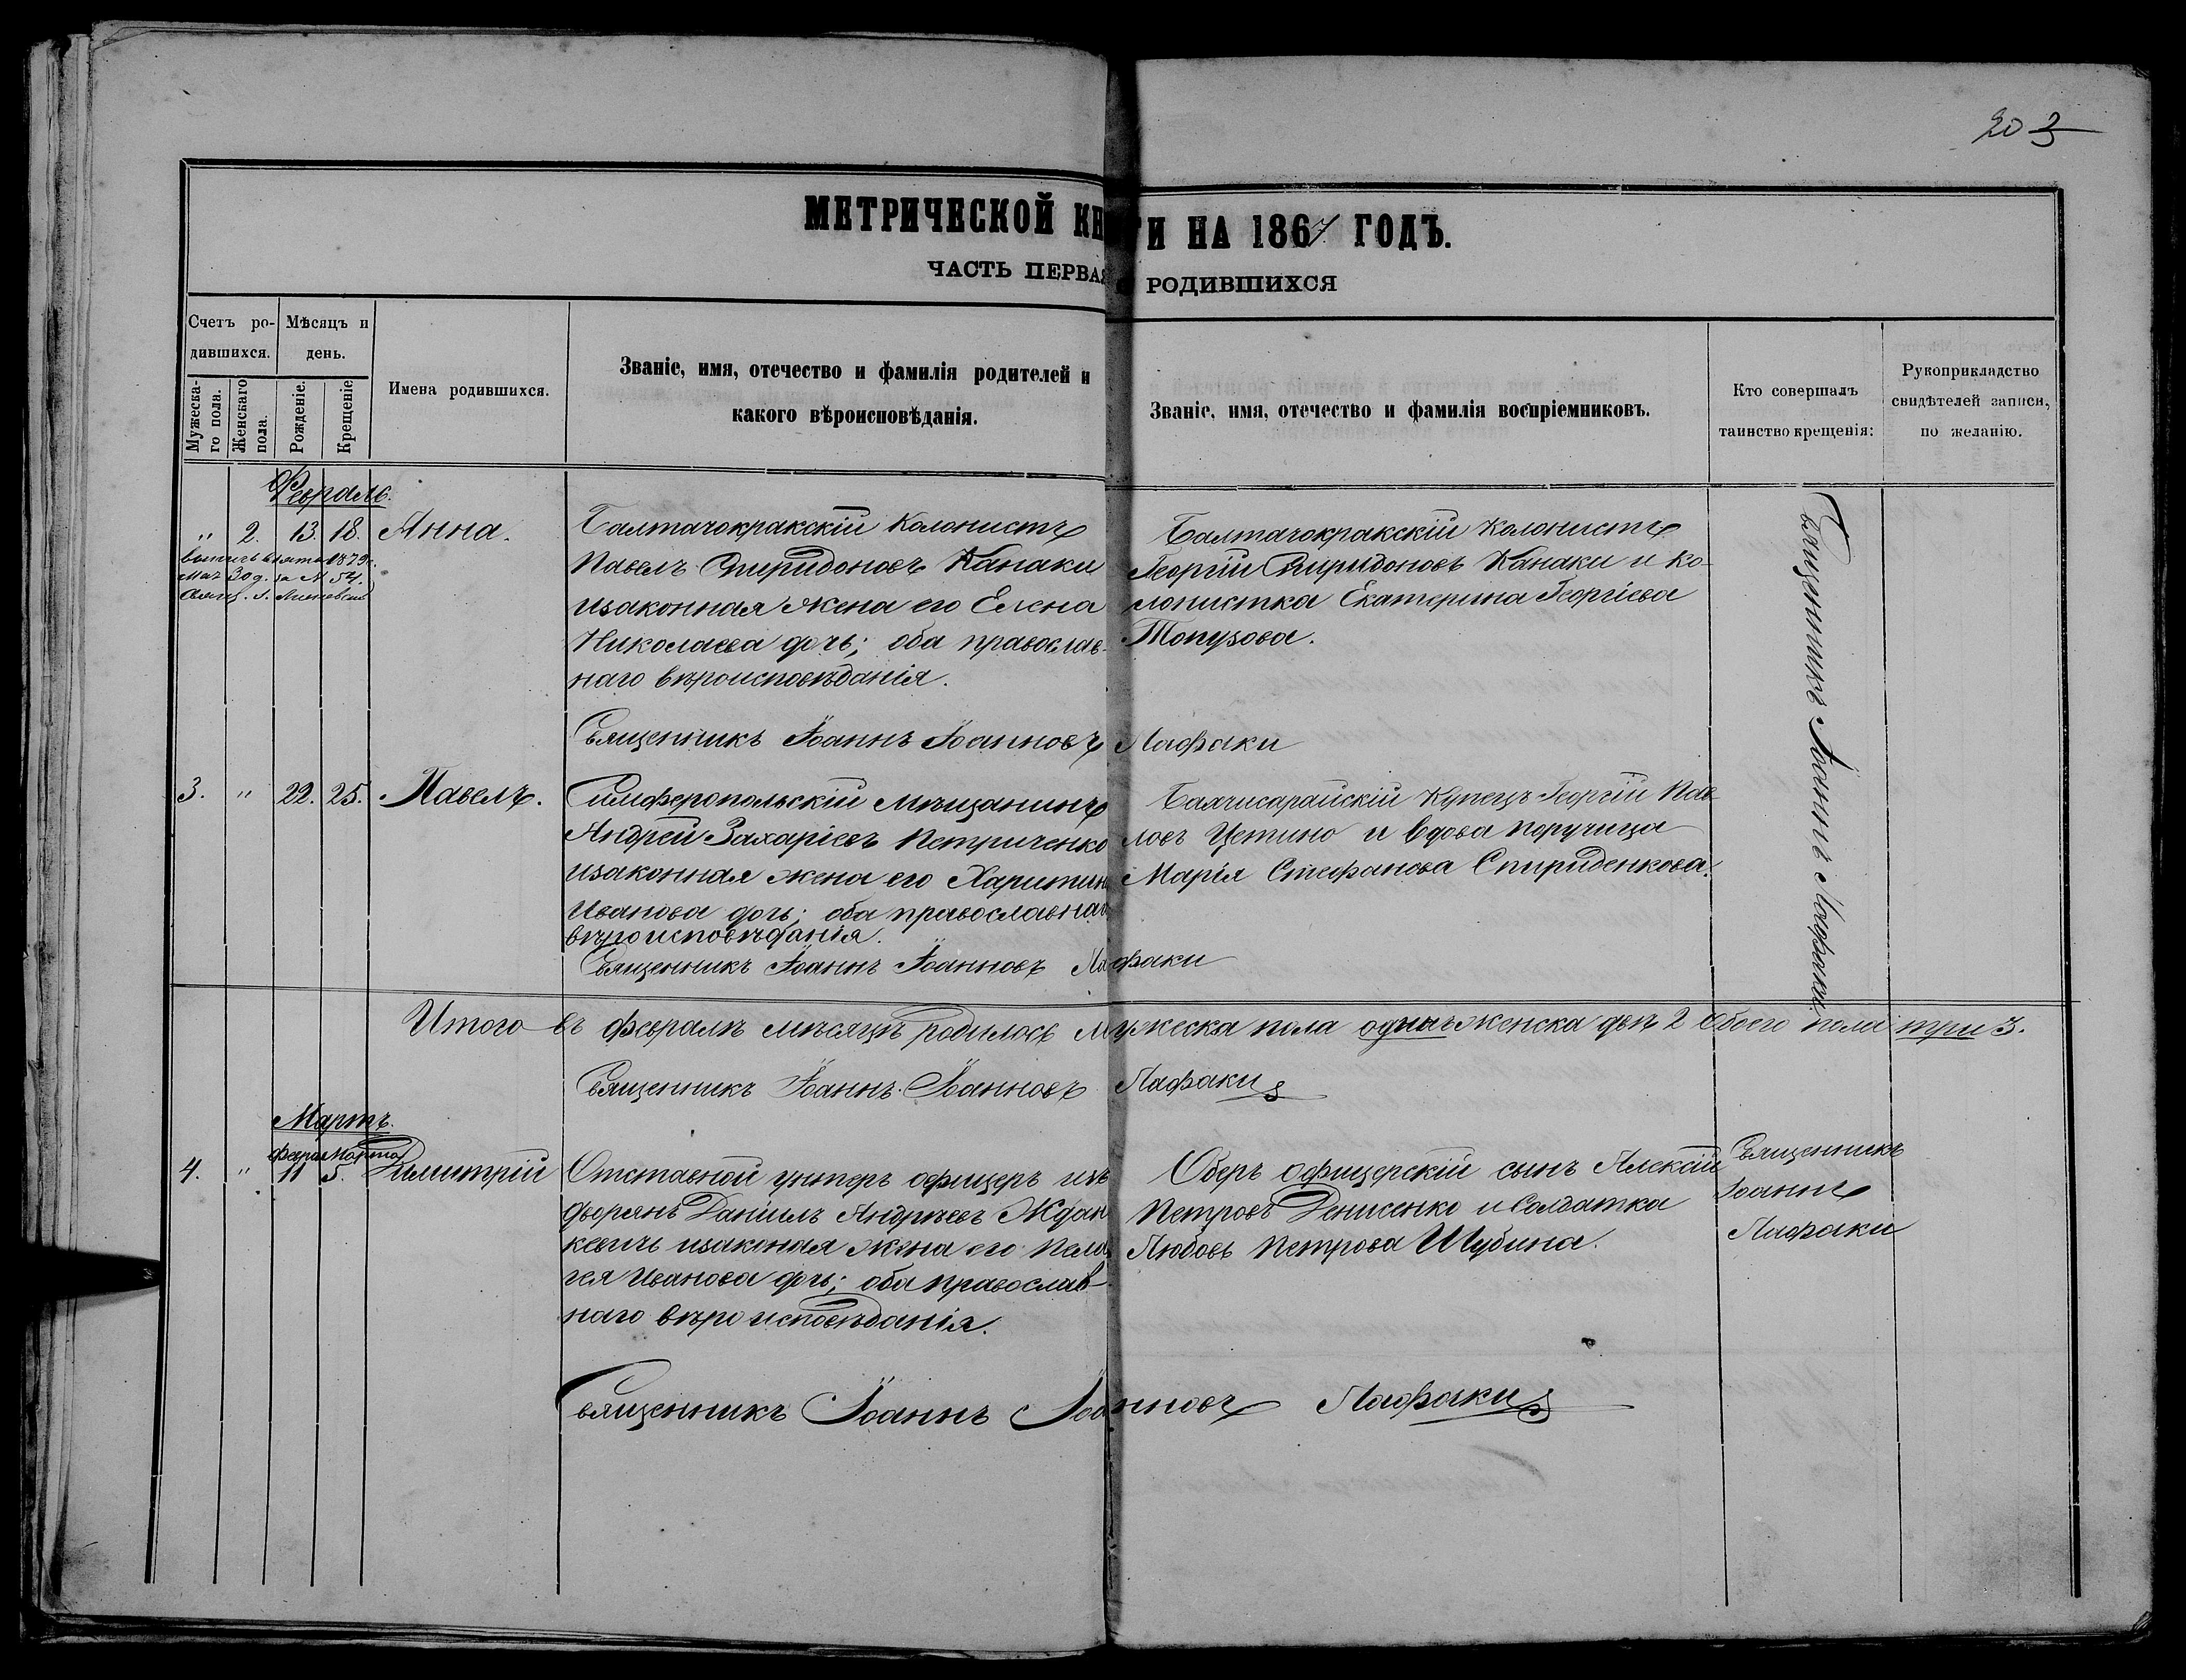 203
МЕТРИЧЕСКОЙ КНИГИ НА 1867 ГОДЪ.
ЧАСТЬ ПЕРВАЯ О РОДИВШИХСЯ
Счетъ ро-
дившихся.
Мужеска-
го пола.
Женскаго
пола.
Мѣсяцъ и
день.
Рожденіе.
Крещеніе.
Имена родившихся.
Званіе, имя, отечество и фамилія родителей и
какого вѣроисповѣданія.
Званіе, имя, отечество и фамилія воспріемниковъ.
Кто совершалъ
таинство крещенія:
Рукоприкладство
свидѣтелей записи,
по желанію.
Февраль.
" 2. 13. 18. Анна.
1879г.
Мая 30 д. за № 54.
Балтачокракскій Колонистъ
Павелъ Спиридоновъ Канаки
изаконная жена его Елена
Николаева дочь; оба православ-
наго вѣроисповѣданія.
Балтачокракскій Колонистъ
Георгій Спиридоновъ Канаки и ко-
лонистка Екатерина Георгіева
Топузова.
Священникъ Іоаннъ Лафаки
Священникъ Іоаннъ Іоанновъ Лафаки
3. " 22. 25. Павелъ.
Симферопольскій Мѣщанинъ
Андрей Захаріевъ Петриченко
изаконная жена его Харитина
Иванова дочь; оба православнаго
вѣроисповѣданія.
Бахчисарайскій Купецъ Георгій Пав-
ловъ Цетино и вдова поручица
Марія Стефанова Спириденкова.
Священникъ Іоаннъ Іоанновъ Лафаки
Итого въ февралѣ мѣсяцѣ родилось Мужеска пола одинъ женска двѣ 2 обоего пола три 3.
Священникъ Іоаннъ Іоанновъ Лафаки
Мартъ.
Февра Марта
4. " 11 5. Димитрій
Отставной унтеръ офицеръ изъ
дворянъ Даніилъ Андреевъ Ждан
кевичъ изаконая жена его Пела
гея Иванова дочь; оба православ-
наго вѣроисповѣданія.
Оберъ офицерскій сынъ Алексій
Петровъ Денисенко и Солдатка
Любовь Петрова Шубина.
Священникъ
Іоаннъ
Лафаки
Священникъ Іоаннъ Іоанновъ Лафаки